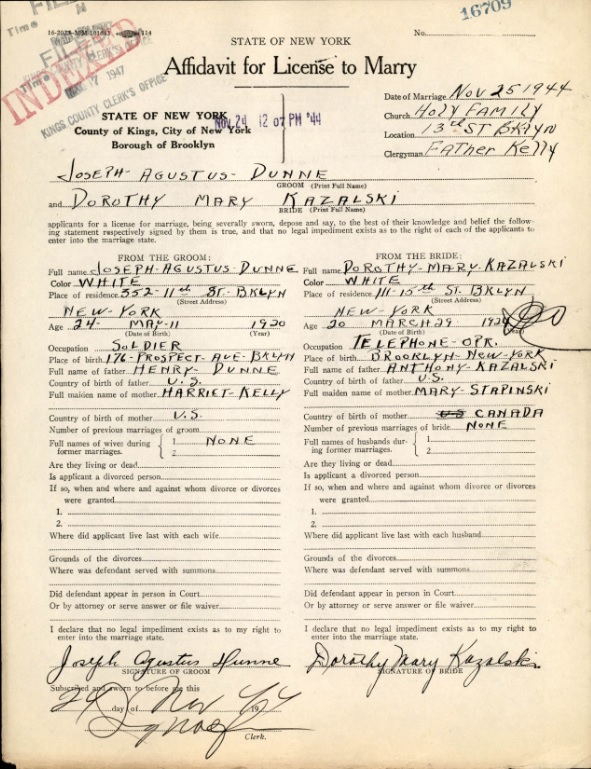 16709
No.
STATE OF NEW YORK
Affidavit for License to Marry
INDEXED
FILED
17 1947
KINGS COUNTY CLERK'S OFFICE
Date of Marriage Nov 25 1944
Church HOLY FAMILY
Location 13th ST BKLYN
Clergyman FATHER KELLY
STATE OF NEW YORK
County of Kings, City of New York
Borough of Brooklyn
NOV. 24 12 07 PM '44
JOSEPH - AGUSTUS - DUNNE
GROOM (Print Full Name)
and DOROTHY MARY KAZALSKI
BRIDE (Print Full Name)
applicants for a license for marriage, being severally sworn, depose and say, to the best of their knowledge and belief the follow-
ing statement respectively signed by them is true, and that no legal impediment exists as to the right of each of the applicants to
enter into the marriage state.
FROM THE GROOM:
Full name JOSEPH - AGUSTUS - DUNNE
Color WHITE
Place of residence 352 - 11th ST - BKLYN
(Street Address)
NEW - YORK
Age 24 - MAY - 11 1920
(Date of Birth) (Year)
Occupation SOLDIER
Place of birth 176 - PROSPECT - AVE - BKLYN
Full name of father HENRY - DUNNE
Country of birth of father U. S.
Full maiden name of mother HARRIET - KELLY
Country of birth of mother U. S.
Number of previous marriages of groom
Full names of wives during
former marriages.
1. NONE
2.
Are they living or dead
Is applicant a divorced person
If so, when and where and against whom divorce or divorces
were granted
1.
2.
Where did applicant live last with each wife
Grounds of the divorces
Where was defendant served with summons
Did defendant appear in person in Court
Or by attorney or serve answer or file waiver
I declare that no legal impediment exists as to my right to
enter into the marriage state.
Joseph Agustus Dunne
SIGNATURE OF GROOM
FROM THE BRIDE:
Full name DOROTHY - MARY - KAZALSKI
Color WHITE
Place of residence 111 - 15th ST. BKLYN
(Street Address)
NEW - YORK
Age 20 MARCH 29
(Date of Birth) (Year)
Occupation TELEPHONE - OPR.
Place of birth BROOKLYN - NEW - YORK
Full name of father ANTHONY - KAZALSKI
Country of birth of father U. S.
Full maiden name of mother MARY - STAPINSKI
Country of birth of mother US CANADA
Number of previous marriages of bride NONE
Full names of husbands dur-
ing former marriages.
1.
2.
Are they living or dead
Is applicant a divorced person
If so, when and where and against whom divorce or divorces
were granted
1.
2.
Where did applicant live last with each husband
Grounds of the divorces
Where was defendant served with summons
Did defendant appear in person in Court
Or by attorney or serve answer or file waiver
I declare that no legal impediment exists as to my right to
enter into the marriage state.
Dorothy Mary Kazalski
SIGNATURE OF BRIDE
Subscribed and sworn to before me this
24 day of Nov 1944
Clerk.